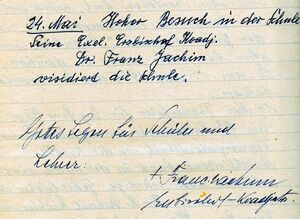 24. Mai Hoher Besuch in der Schule
Seine Exel. Erzbischof Koadj.
Dr. Franz Jachim
visidiert die Schule.
Gottes Segen für Schüler und
Lehrer:
+ Franz Jachim
Erzbischof-Koadjutor